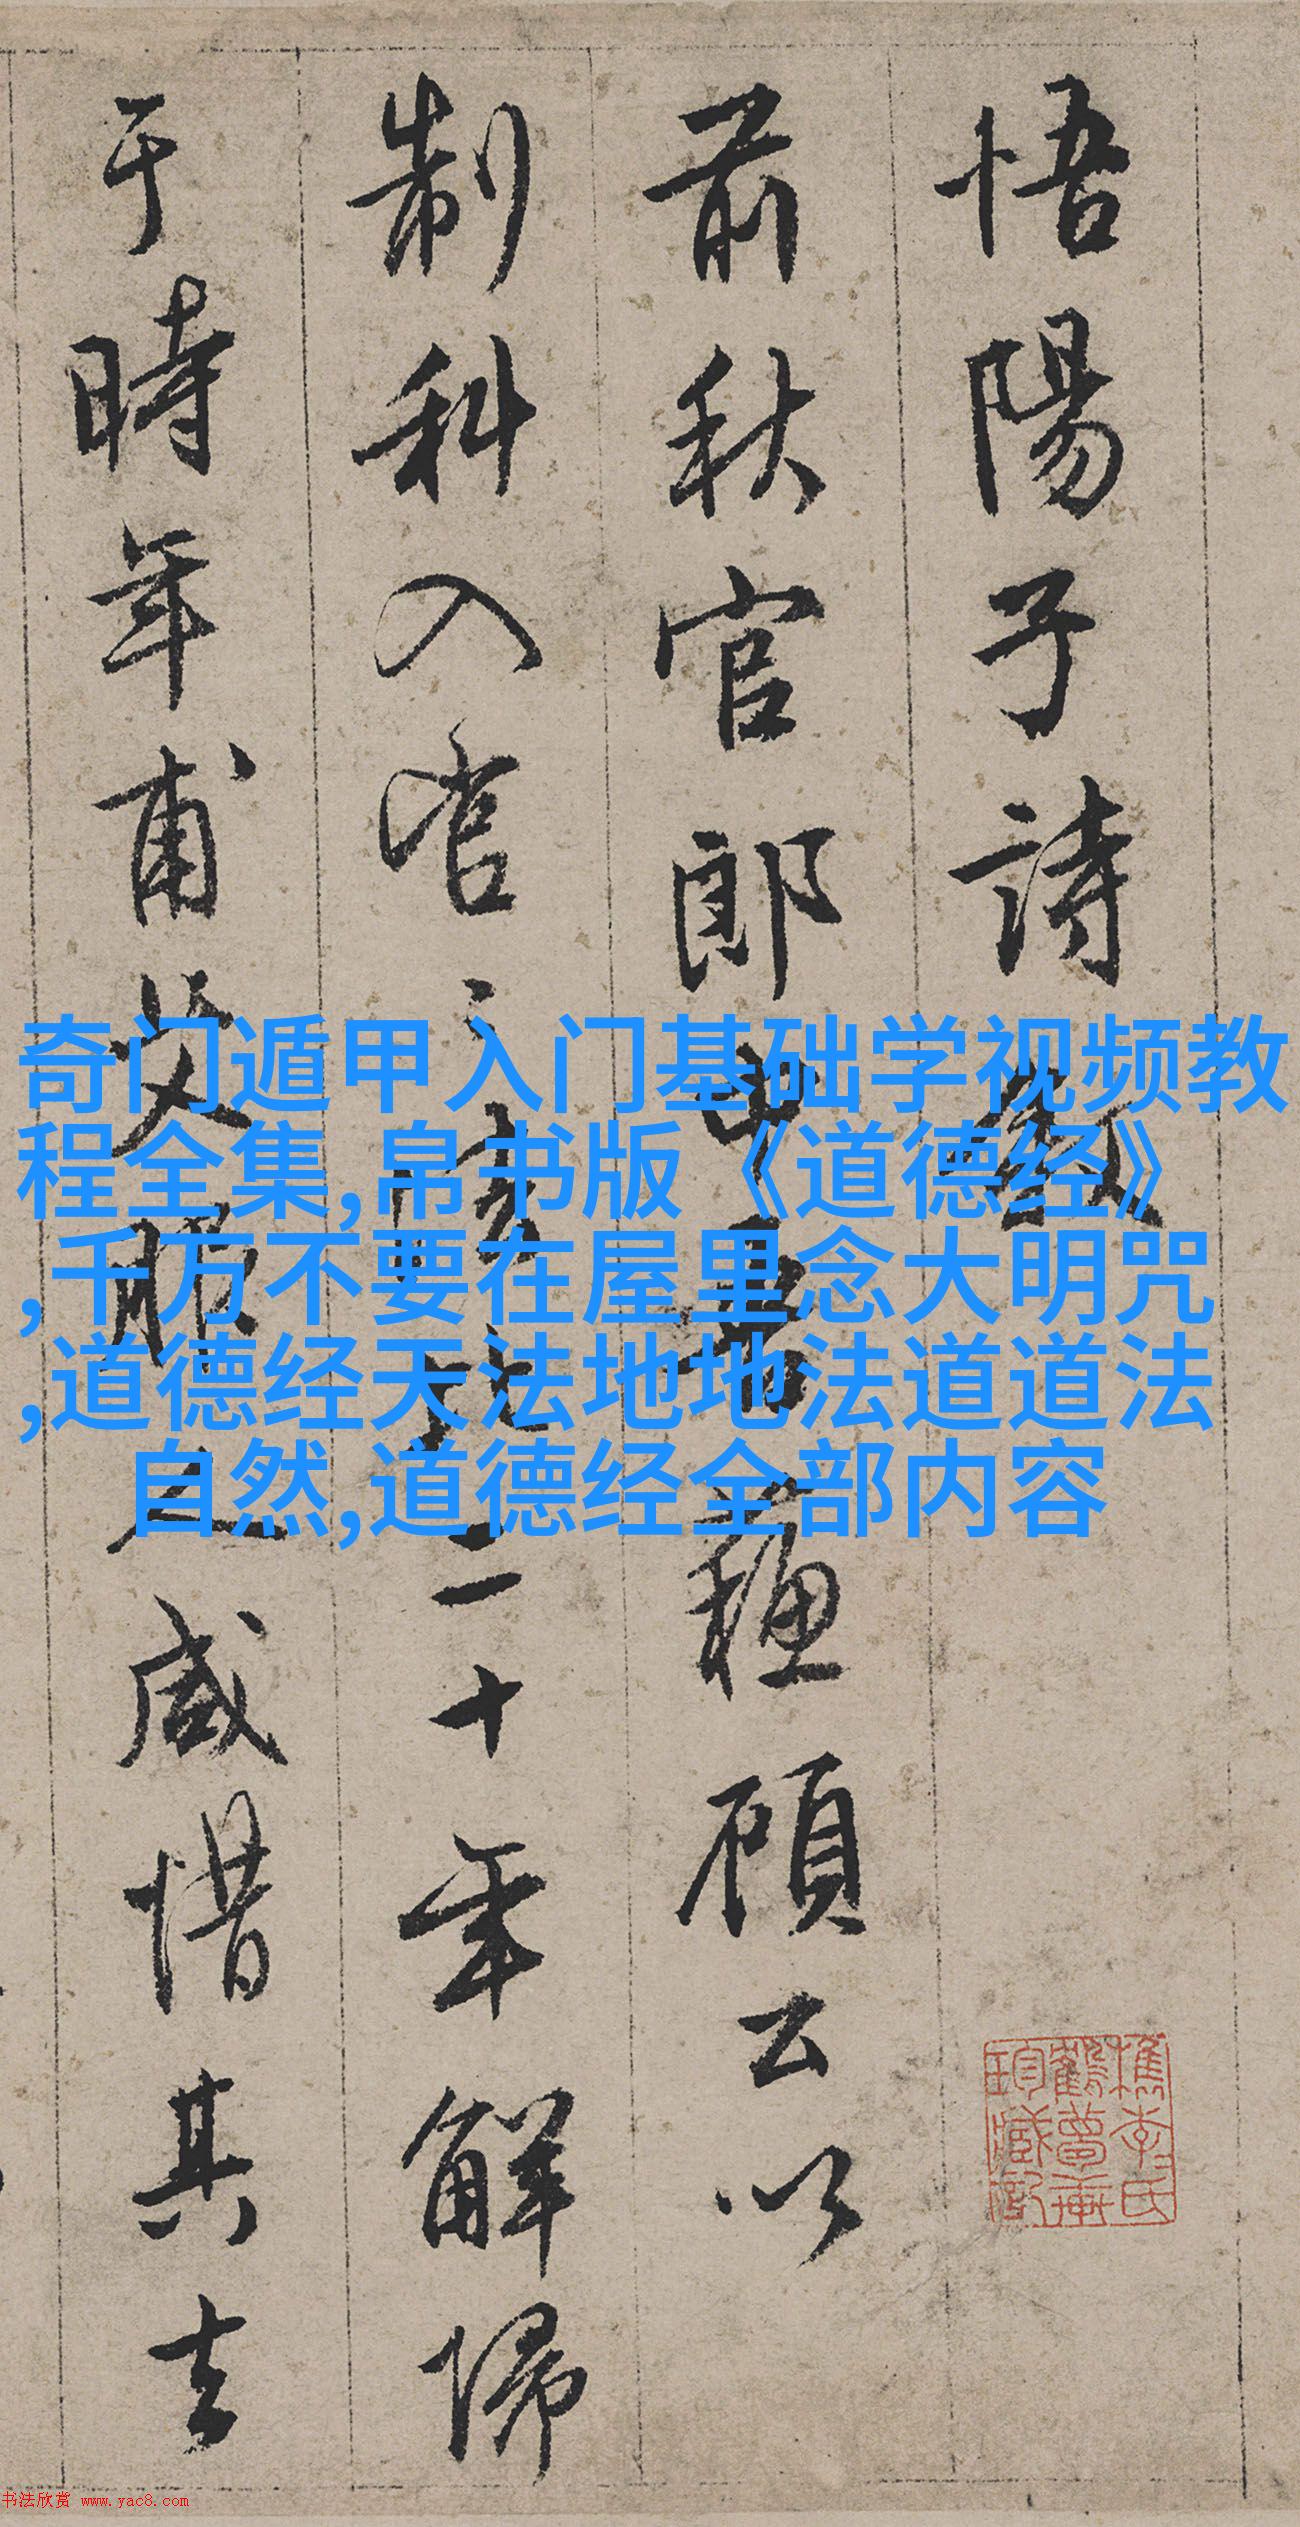 悟陽子詩敘
前秋官郎中吾蘓顧公以
制科入官二十年解歸
于時年甫艾服人咸惜其去
奇门遁甲入门基础学视频教
程全集,帛书版《道德经》
,千万不要在屋里念大明咒
,道德经天法地地法道道法
自然,道德经全部内容
檇李氏
鶴夢軒
珍藏記
书法欣赏 www.yac8.com